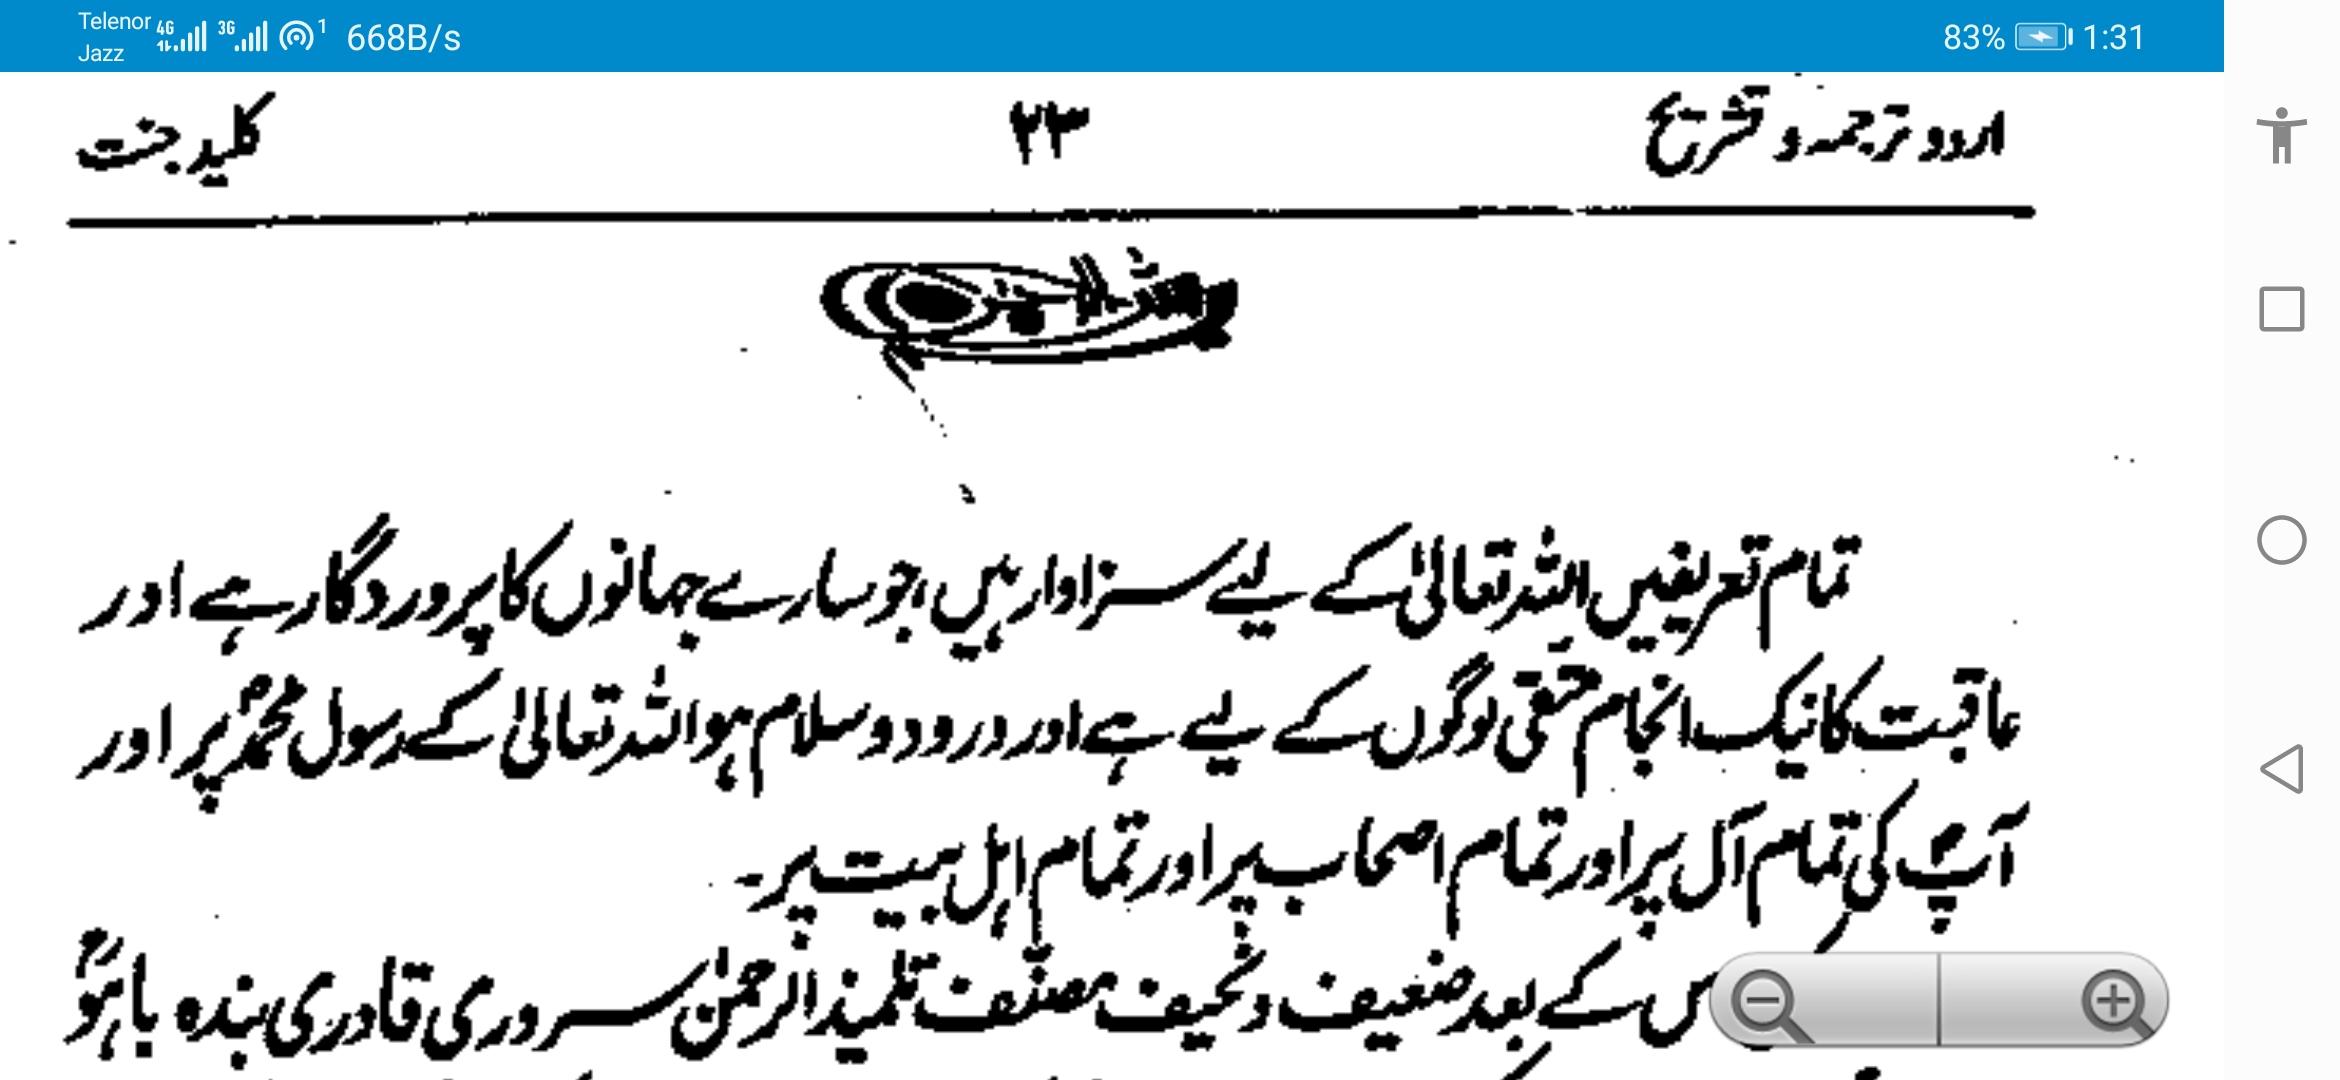 Telenor 4G 3G 1 668B/s 83% 1:31
Jazz
اردو ترجمہ و تشریح ۲۳ کلید جنت
تمام تعریفیں اللہ تعالیٰ کے لیے سزاوار ہیں، جو سارے جہانوں کا پروردگار ہے اور
عاقبت کا نیک انجام متقی لوگوں کے لیے ہے اور درود و سلام ہو اللہ تعالیٰ کے رسول محمدؐ پر اور
آپؐ کی تمام آل پر اور تمام اصحاب پر اور تمام اہل بیت پر۔
س کے بعد ضعیف و نحیف مصنّف تلمیذ الرحمٰن سروری قادری بندہ باہُوؒ